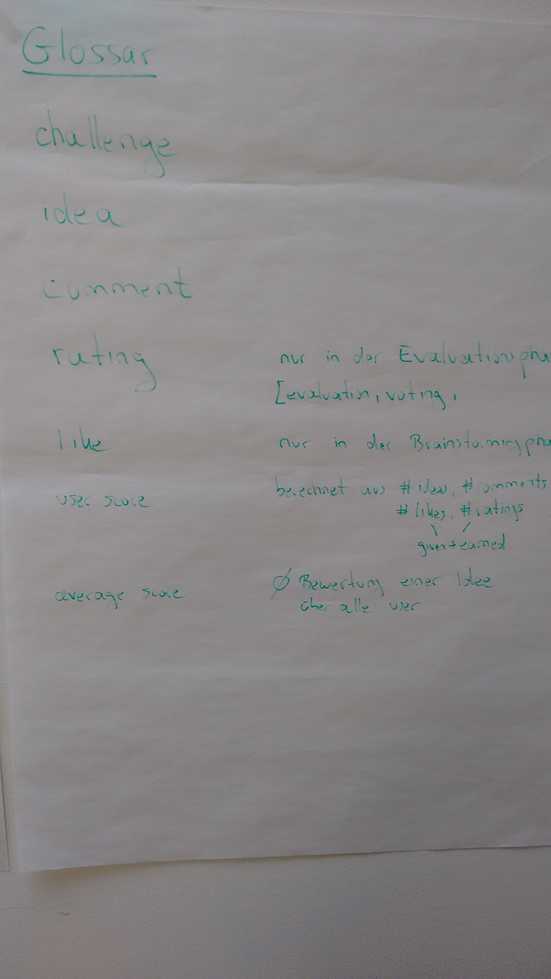 Glossar
challenge
idea
comment
rating nur in der Evaluationspha
[evaluation, voting,
like nur in der Brainstormingpha
user score berechnet aus # ideas, # comments
# likes, # ratings
given + earned
average score Ø Bewertung einer Idee
über alle user